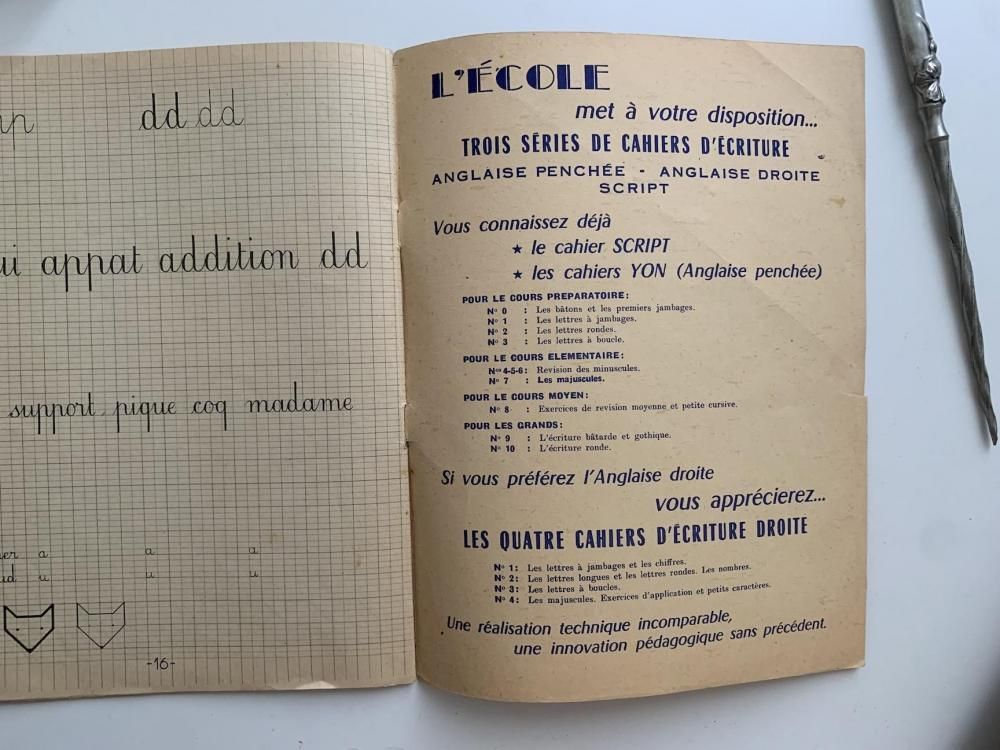 dd dd
appat addition dd
support pique coq madame
a a a
u u u
-16-
L'ÉCOLE
met à votre disposition...
TROIS SÉRIES DE CAHIERS D'ÉCRITURE
ANGLAISE PENCHÉE - ANGLAISE DROITE
SCRIPT
Vous connaissez déjà
★ le cahier SCRIPT
★ les cahiers YON (Anglaise penchée)
POUR LE COURS PREPARATOIRE:
No 0 : Les bâtons et les premiers jambages.
No 1 : Les lettres à jambages.
No 2 : Les lettres rondes.
No 3 : Les lettres à boucle.
POUR LE COURS ELEMENTAIRE:
Nos 4-5-6: Revision des minuscules.
No 7 : Les majuscules.
POUR LE COURS MOYEN:
No 8 : Exercices de revision moyenne et petite cursive.
POUR LES GRANDS:
No 9 : L'écriture bâtarde et gothique.
No 10 : L'écriture ronde.
Si vous préférez l'Anglaise droite
vous apprécierez...
LES QUATRE CAHIERS D'ÉCRITURE DROITE
No 1: Les lettres à jambages et les chiffres.
No 2: Les lettres longues et les lettres rondes. Les nombres.
No 3: Les lettres à boucles.
No 4: Les majuscules. Exercices d'application et petits caractères.
Une réalisation technique incomparable,
une innovation pédagogique sans précédent.